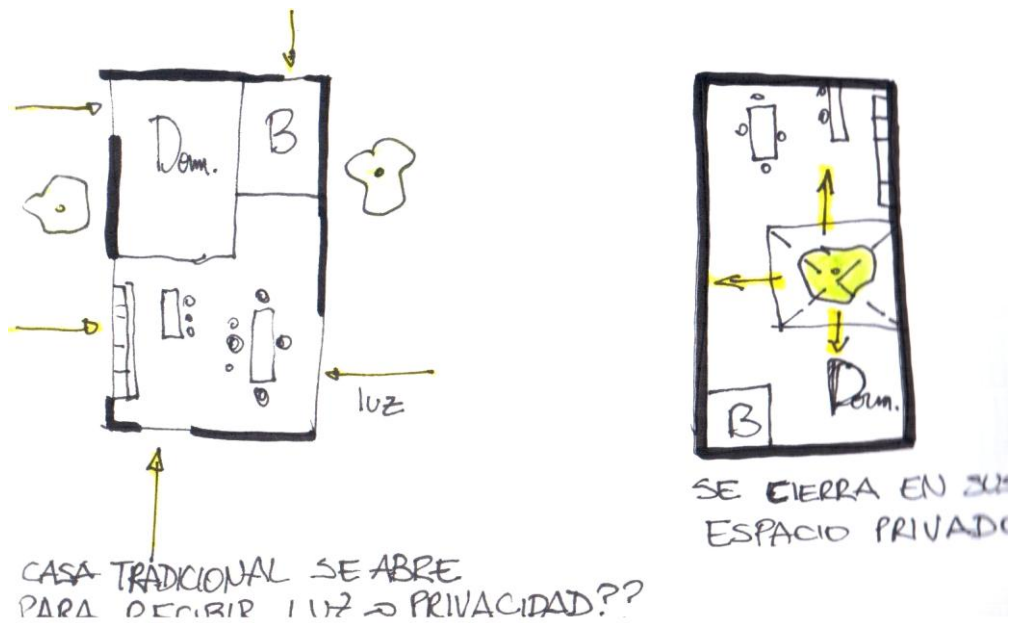 Dom.
B
luz
CASA TRADICIONAL SE ABRE
PARA RECIBIR LUZ → PRIVACIDAD??
B
Dorm.
SE CIERRA EN SUS
ESPACIO PRIVADO